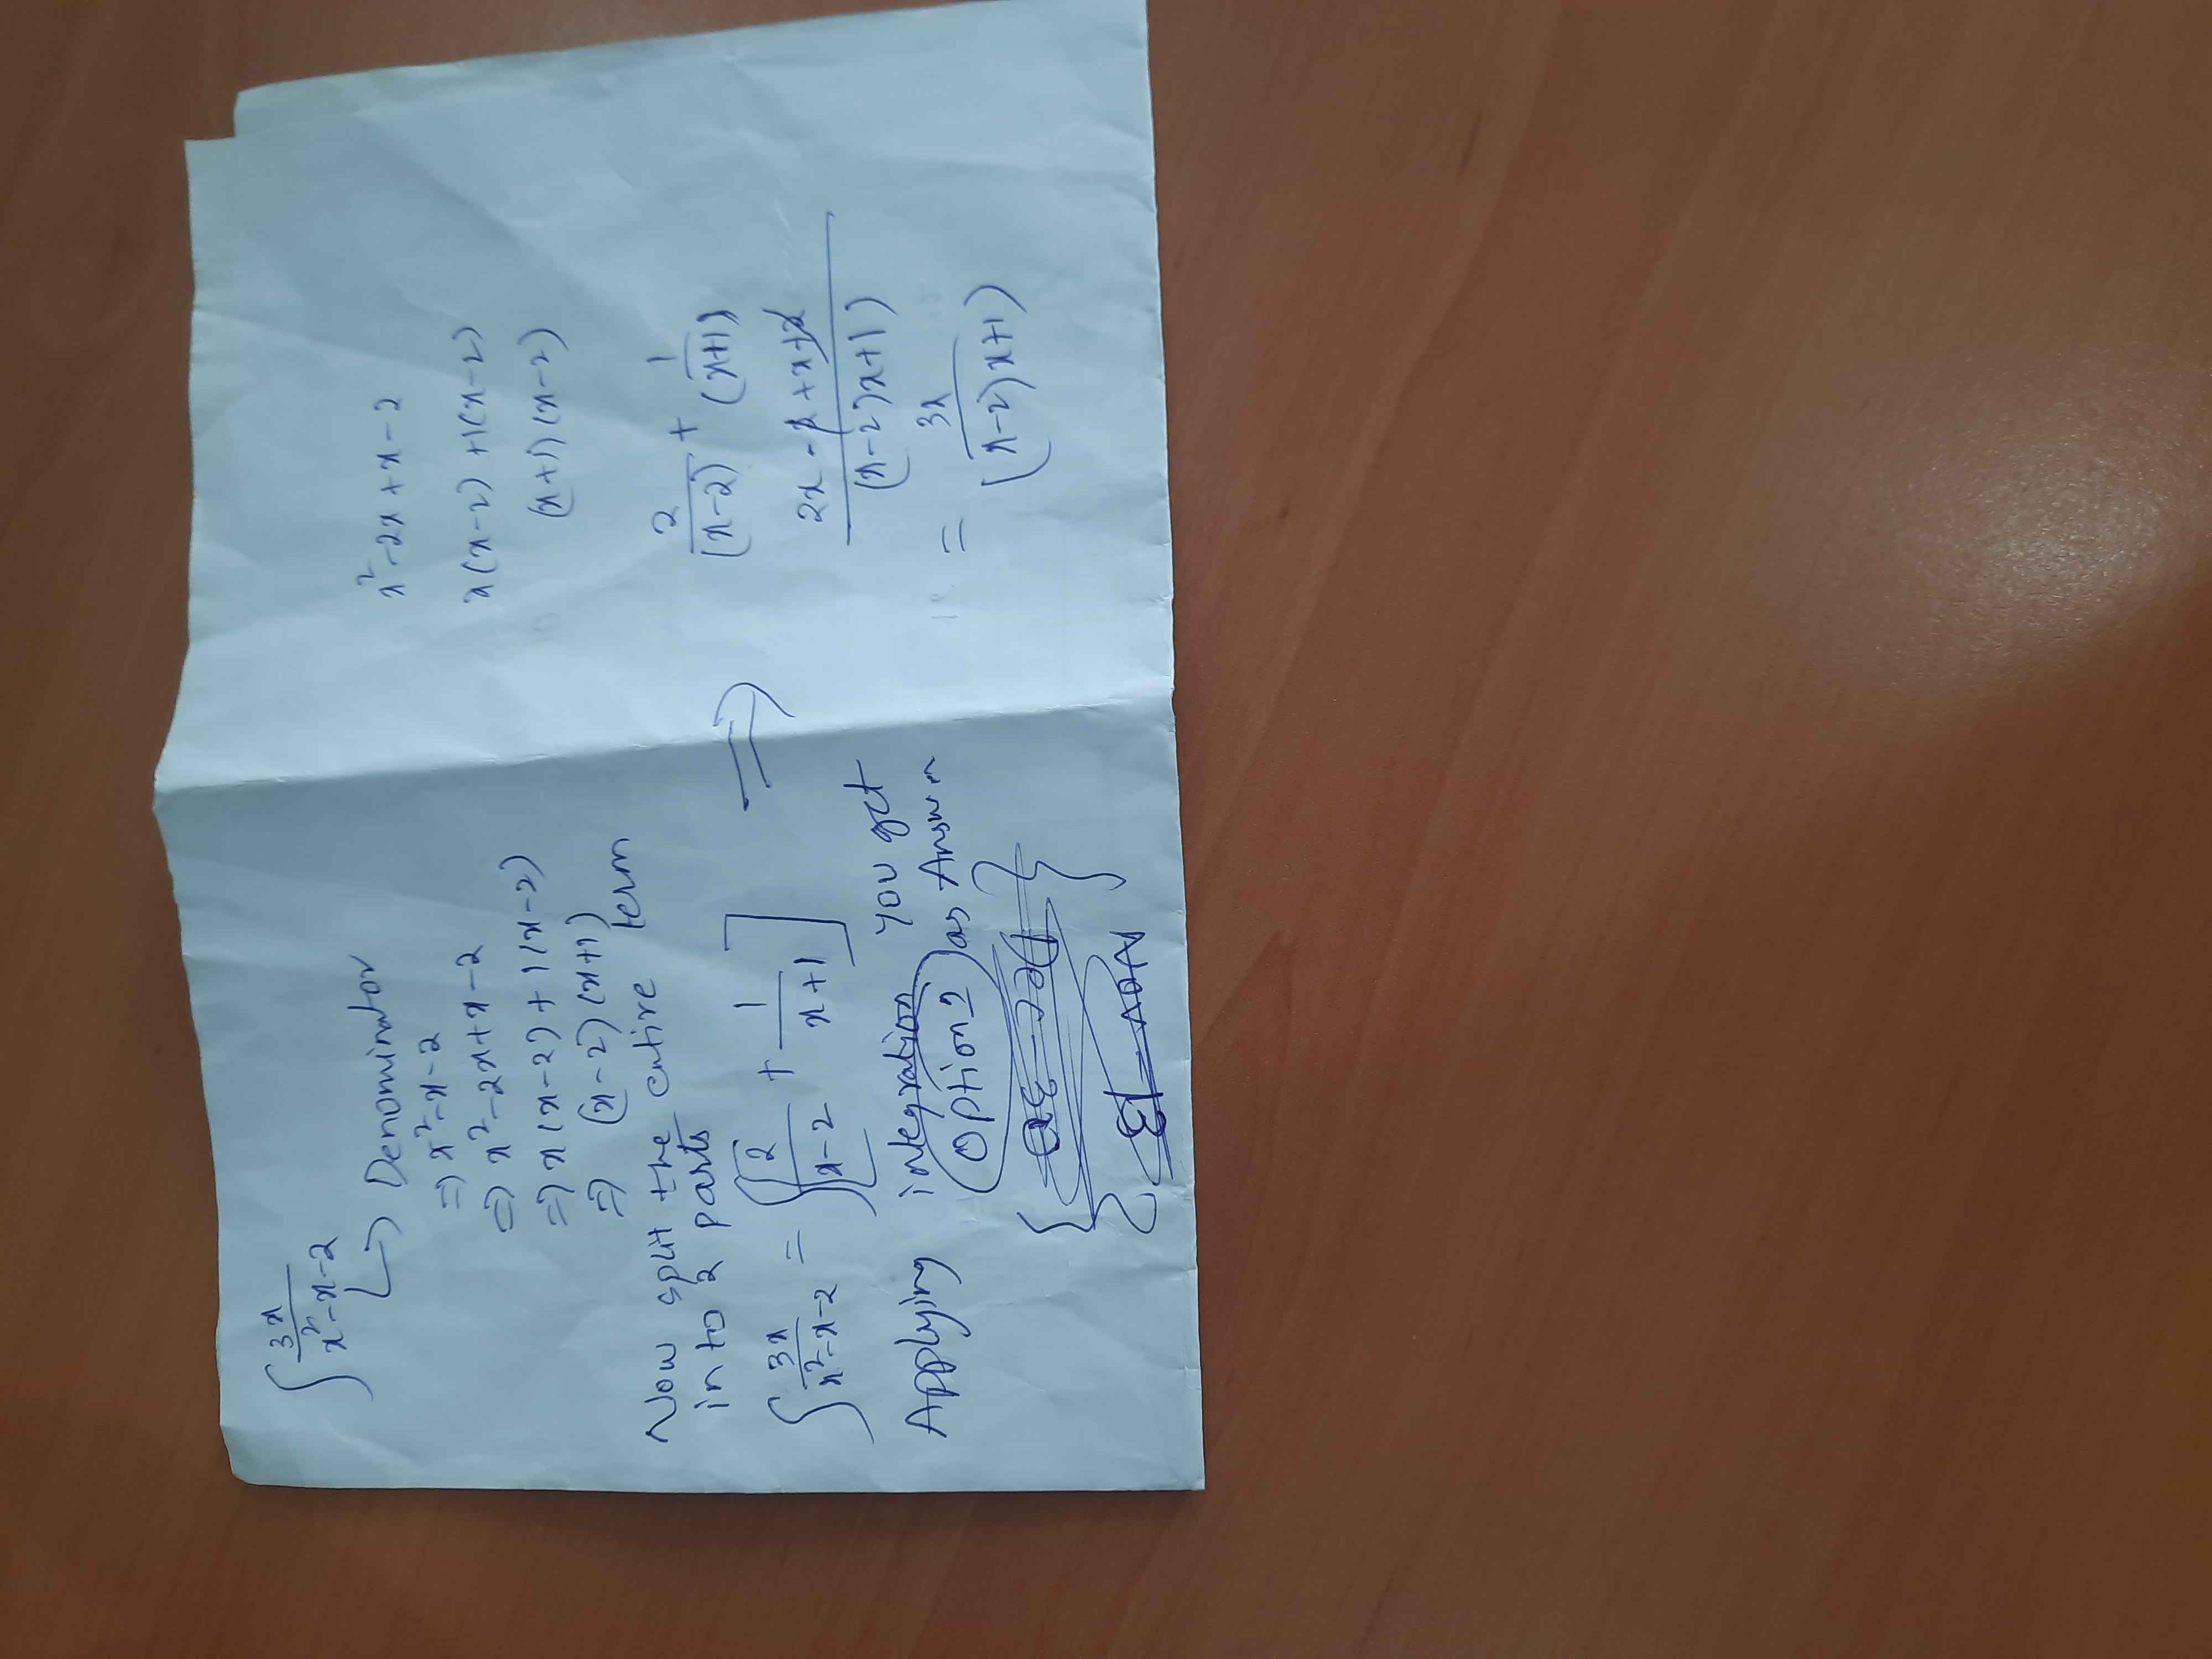 ∫ 3x / x²-x-2
↳ Denominator
⇒ x²-x-2
⇒ x²-2x+x-2
⇒ x(x-2)+1(x-2)
⇒ (x-2)(x+1)
Now split the entire term
into 2 parts
∫ 3x / x²-x-2 = ∫ [ 2 / x-2 + 1 / x+1 ] ⇒
Applying integration you get
Option 2 as Answer
13 - NOV
x²-2x+x-2
x(x-2)+1(x-2)
(x+1)(x-2)
2 / (x-2) + 1 / (x+1)
2x-2+x+2 / (x-2)x+1)
= 3x / (x-2)x+1)